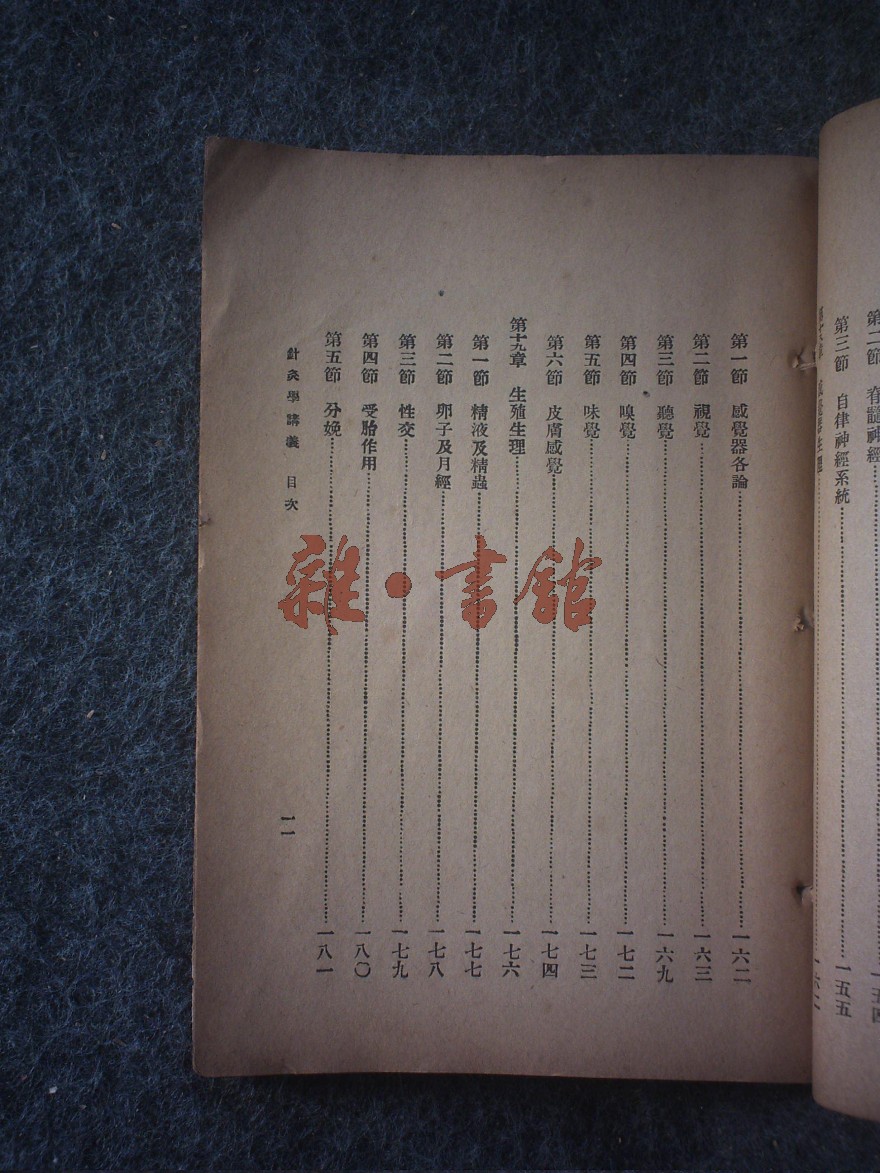 第二節　脊髓神經………一五四
第三節　自律神經系統………一五五
第一節　感覺器各論………一六二
第二節　視覺………一六三
第三節　聽覺………一六九
第四節　嗅覺………一七二
第五節　味覺………一七三
第六節　皮膚感覺………一七四
第十九章　生殖生理………一七六
第一節　精液及精蟲………一七七
第二節　卵子及月經………一七八
第三節　性交………一七九
第四節　受胎作用………一八〇
第五節　分娩………一八一
針灸學講義　目次
一一
雜·書館